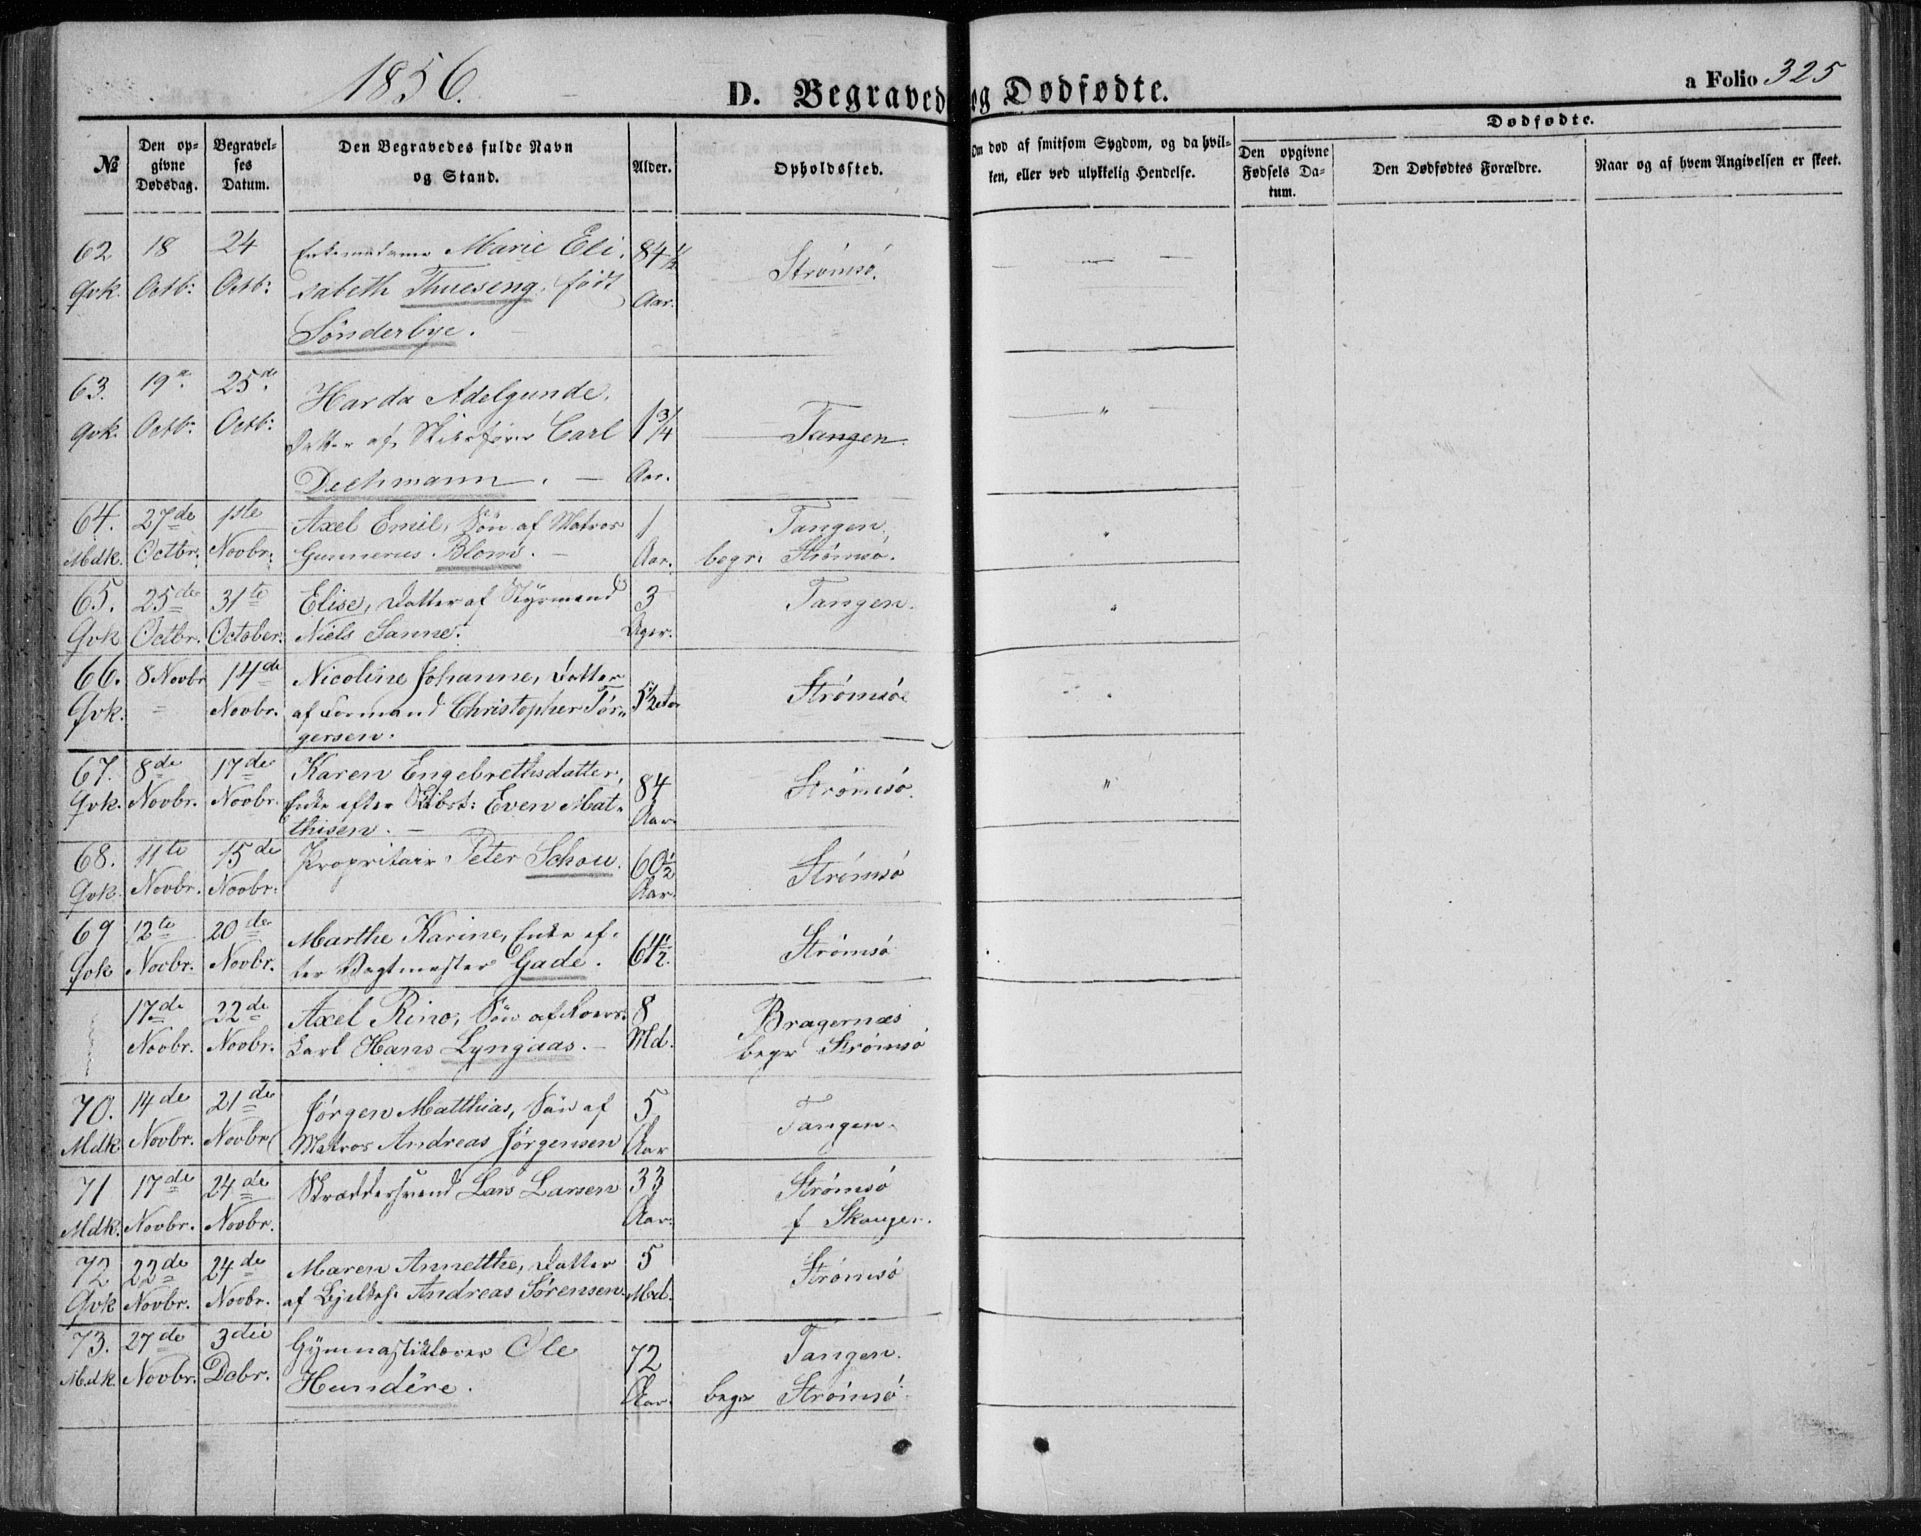 1856.
D. Begravede og Dødfødte.
a Folio 325
№
Den opgivne Dødsdag.
Begravelses Datum.
Den Begravedes fulde Navn og Stand.
Alder.
Opholdssted.
Om død af smitsom Sygdom, og da hvilken, eller ved ulykkelig Hendelse.
Dødfødte.
Den opgivne Fødsels Datum.
Den Dødfødtes Forældre.
Naar og af hvem Angivelsen er skeet.
62 18 24 Enkemadame Marie Eli- 84½ Strømsö.
Qvk. Octb: Octb: sabeth Thueseng, født Aar.
Sønderbye.
63. 19de 25de Harda Adelgunde, 1¾ Tangen.
Qvk. Octb: Octb: Datter af Skibsfører Carl
Dechmann. Aar.
64. 27de 1ste Axel Emil, Søn af Matros 1 Tangen,
Mdk. Octbr. Novbr. Gunnerus Blom. Aar. begr. Strömsø.
65. 25de 31te Elise, Datter af Styrmand 3 Tangen.
Qvk. Octbr. October. Niels Sanne. Uger.
66. 8 Novbr 14de Nicoline Johanne, Datter 5½ Strømsøe
Qvk. Novbr. af Formand Christopher Tör-
gersen.
67. 8de 17de Karen Engebrethsdatter, 84 Strømsø.
Qvk. Novbr. Novbr. Enke efter Skibst: Even Mat- Aar
thisen.
68. 11te 15de Propritair Peter Schou. 60½ Strömsö
Qvk. Novbr. Novbr. Aar.
69 12te 20de Marthe Karine, Enke ef- 64½. Strømsø
Qvk Novbr. Novbr. ter Vagtmester Gade.
17de 22de Axel Rino, Søn af 8 Bragernæs
Novbr. Novbr. karl Hans Lyngaas. Md. begr Strømsø
70. 14de 21de Jörgen Matthias, Søn af 5 Tangen.
Mdk. Novbr. Novbr. Matros Andreas Jørgensen Aar
71 17de 24de Skræddersvend Lars Larsen 33 Strømsø
Mdk. Novbr. Novbr. Aar. f Skouger.
72 22de 24de Maren Annetthe, Datter 5 Strömsö
Qvk Novbr. Novbr. af Andreas Sørensen Md.
73. 27de 3die Gymnastiklærer Ole 72 Tangen.
Mdk. Novbr. Debr. Hundére. Aar. begr Strömsö.